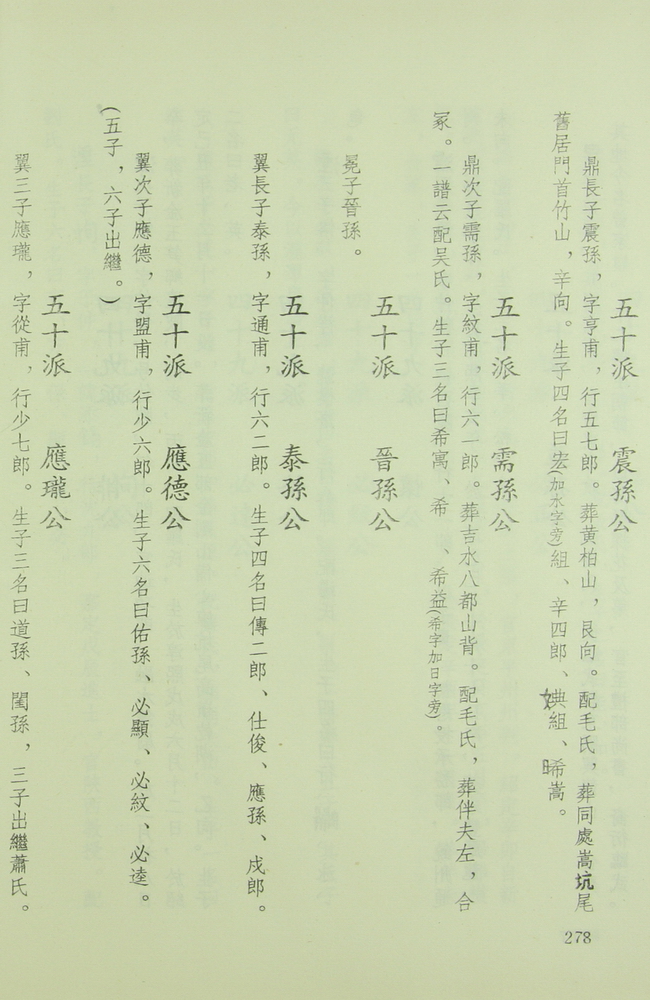 五十派　　震孫公
鼎長子震孫，字亨甫，行五七郎。葬黃柏山，艮向。配毛氏，葬同處嵩坑尾
舊居門首竹山，辛向。生子四名曰宏(加水字旁)組、辛四郎、婰組、晞嵩。
五十派　　需孫公
鼎次子需孫，字紋甫，行六一郎。葬吉水八都山背。配毛氏，葬伴夫左，合
冢。一譜云配吳氏。生子三名曰希寓、希　、希益(希字加日字旁)。
五十派　　晉孫公
冕子晉孫。
五十派　　泰孫公
翼長子泰孫，字通甫，行六二郎。生子四名曰傳二郎、仕俊、應孫、戍郎。
五十派　　應德公
翼次子應德，字盟甫，行少六郎。生子六名曰佑孫、必顯、必紋、必逵。
(五子，六子出繼。)
五十派　　應瓏公
翼三子應瓏，字從甫，行少七郎。生子三名曰道孫、閏孫，三子出繼蕭氏。
278